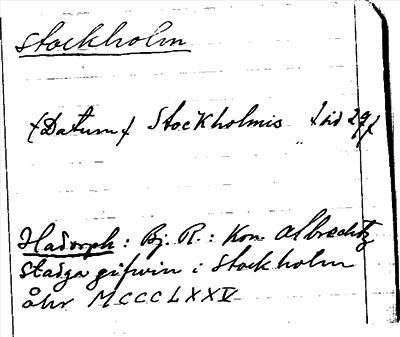 Stockholm
(Datum) Stockholmis (sid 29)
Hadorph: Bj. R.: Kon. Albrechtz
Stadga gifwin i Stockholm
åhr MCCCLXXV